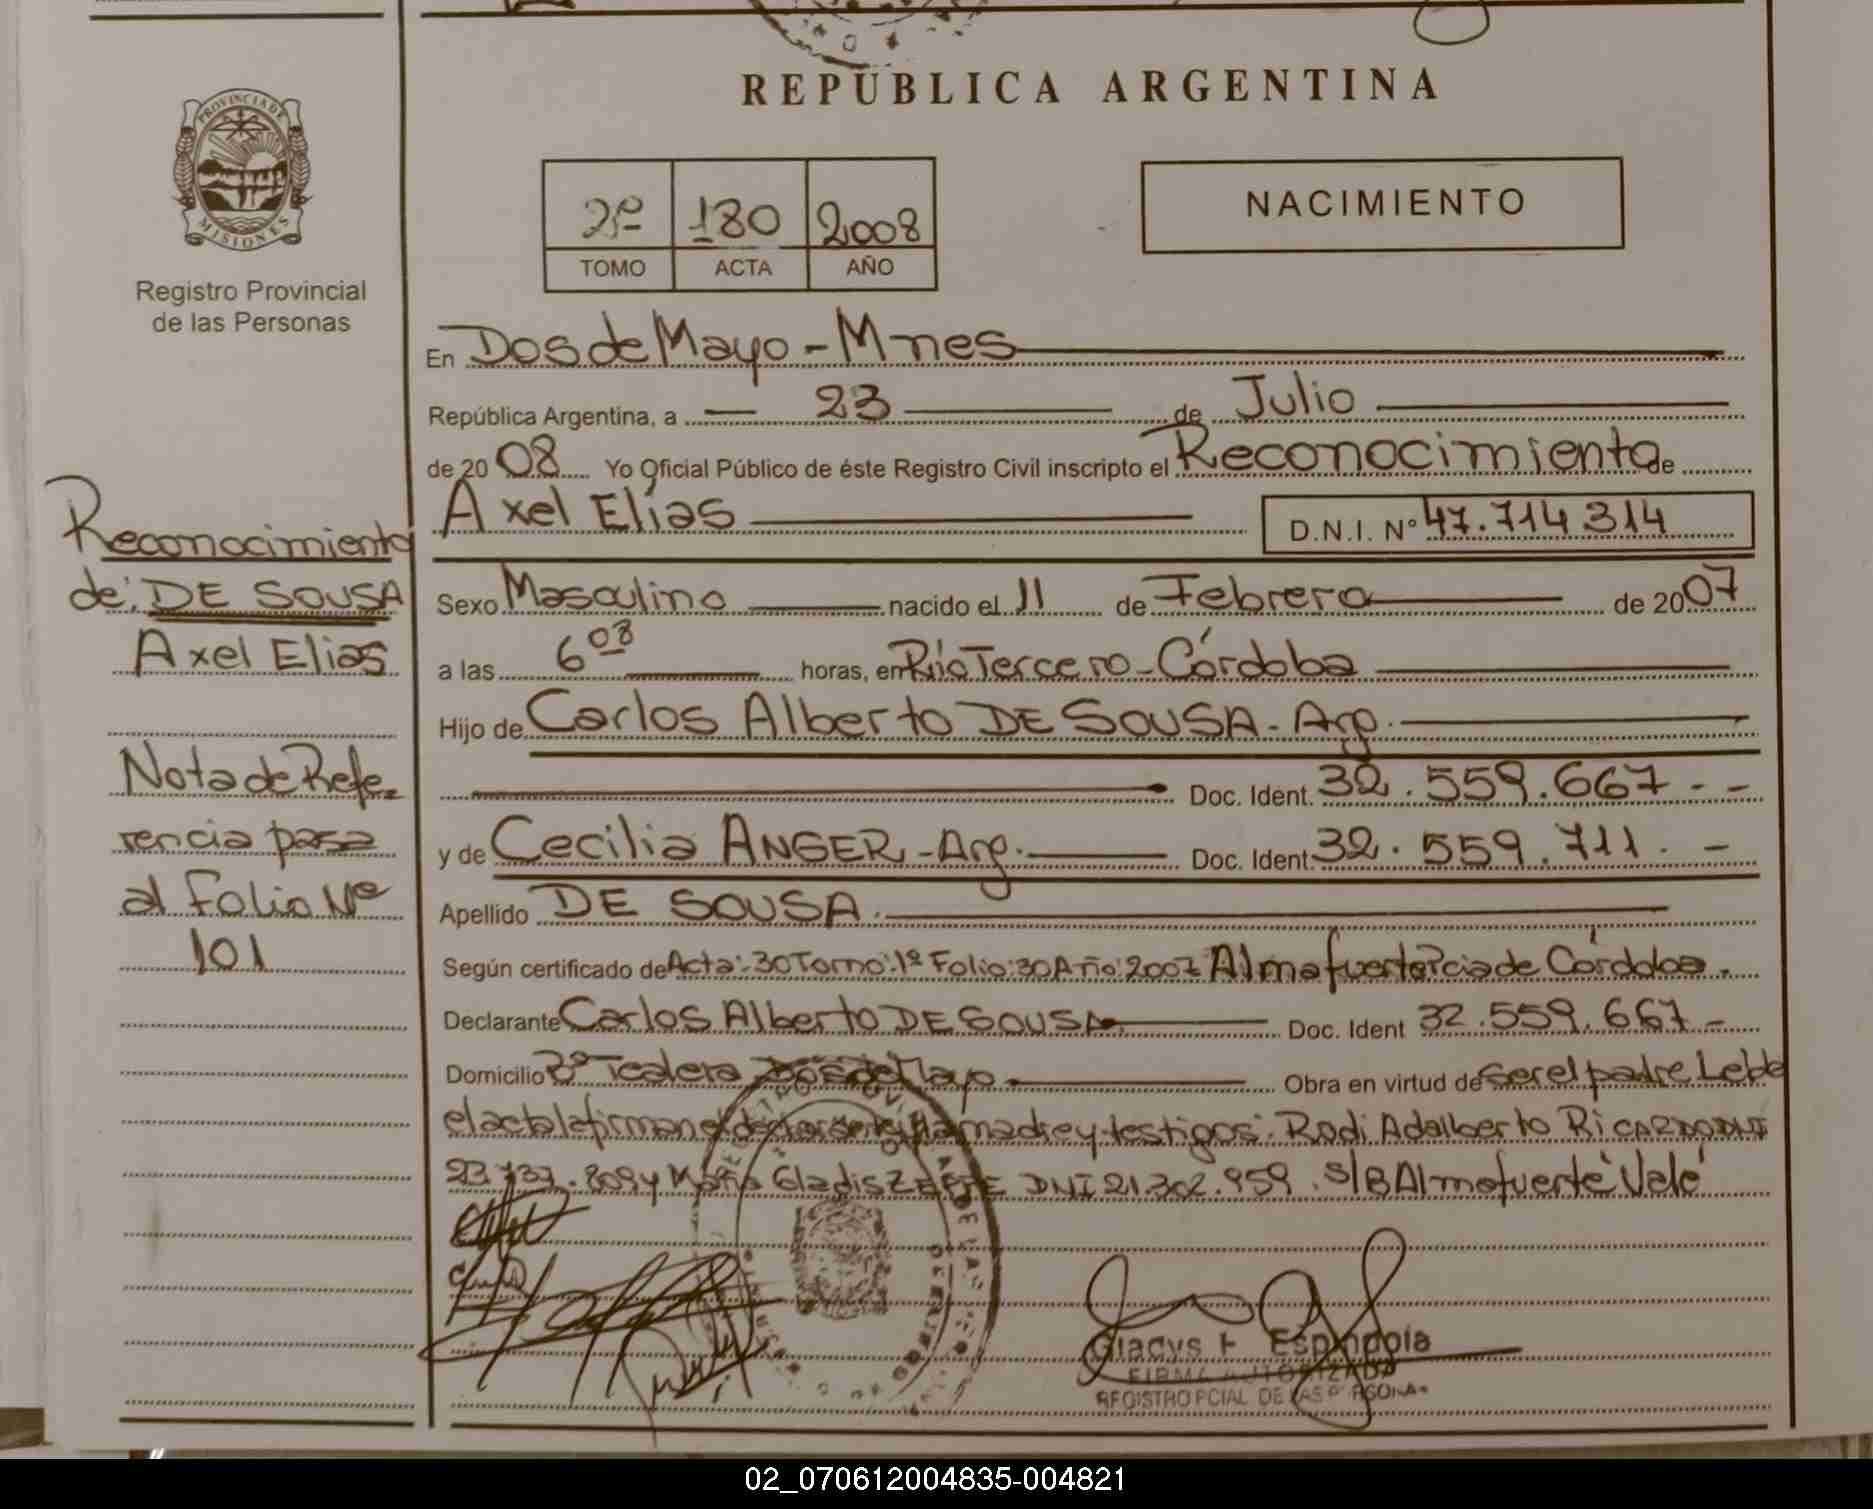 REPUBLICA ARGENTINA
PROVINCIA DE
MISIONES
Registro Provincial
de las Personas
2º 180 2008
TOMO ACTA AÑO
NACIMIENTO
En Dos de Mayo - Mnes
República Argentina, a 23 de Julio
de 2008 Yo Oficial Público de éste Registro Civil inscripto el Reconocimiento de
Axel Elías D.N.I. Nº 47.714.314
Sexo Masculino nacido el 11 de Febrero de 2007
a las 6 08 horas, en Río Tercero - Córdoba
Hijo de Carlos Alberto DE SOUSA - Arg.
Doc. Ident. 32.559.667 - -
y de Cecilia ANGER - Arg. Doc. Ident. 32.559.711. -
Apellido DE SOUSA.
Según certificado de Acta: 30 Tomo: 1º Folio: 30 Año: 2007 Almafuerte Pcia de Córdoba.
Declarante Carlos Alberto DE SOUSA Doc. Ident 32.559.667 -
Domicilio Dos de Mayo Obra en virtud de ser el padre Leída
el acta la firman el declarante, la madre y testigos: Rodi Adalberto RICARDO DNI
y María Gladis DNI 21.302.959. S/B Almafuerte Vale
Gladys F Espindola
FIRMA AUTORIZADA
REGISTRO PCIAL DE LAS PERSONAS
Reconocimiento
de: DE SOUSA
Axel Elias
Nota de Refe-
rencia pasa
al Folio Nº
101
02_070612004835-004821